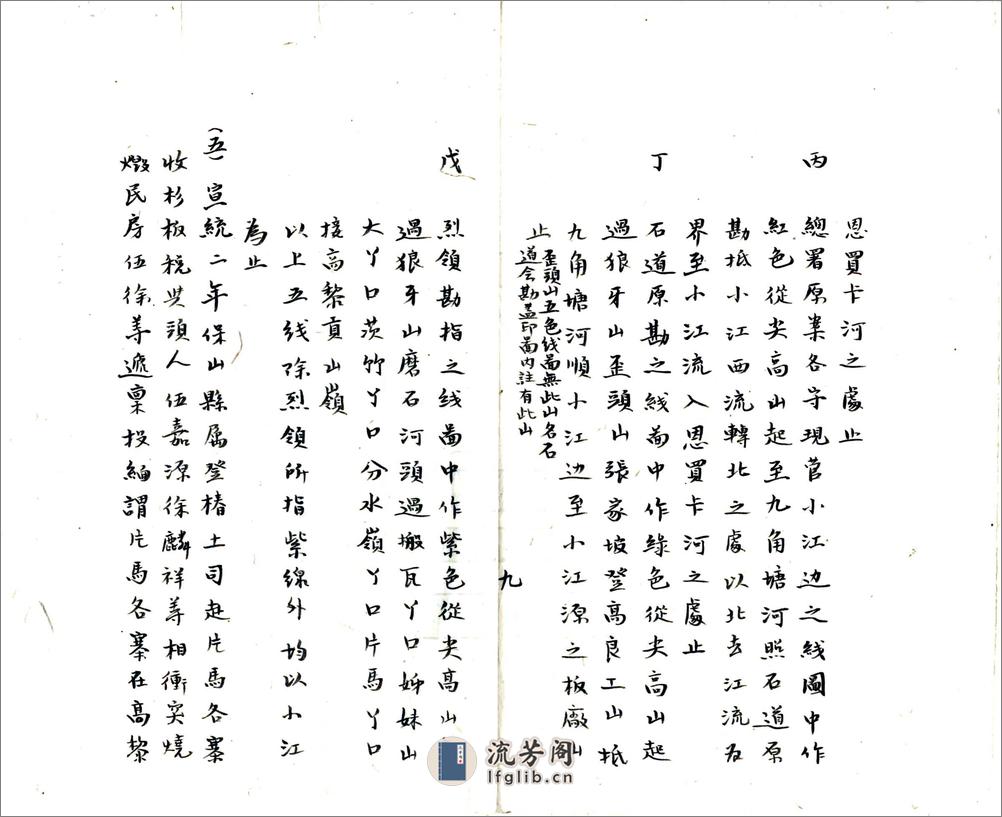 恩買卡河之處止
丙
總署原案各守現菅小江边之线圖中作
紅色從尖高山起至九角塘河照石道原
勘抵小江西流轉北之處以北去江流為
界至小江流入恩買卡河之處止
丁
石道原勘之线啚中作綠色從尖高山起
過狼牙山歪頭山張家坡登高良工山抵
九角塘河順小江边至小江源之板廠山
止
歪頭山五色线啚無此山名石
道会勘盖印啚內註有此山
九
戊
烈領勘指之线啚中作紫色從尖高山
過狼牙山磨石河頭過搬瓦丫口姊妹山
大丫口茨竹丫口分水嶺丫口片馬丫口
接高黎貢山嶺
以上五线除烈領所指紫線外均以小江
為止
(五)宣統二年保山縣属登梗土司赴片馬各寨
收杉板税與頭人伍嘉源徐麟祥等相衝突燒
燬民房伍徐等遞稟投緬謂片馬各寨在高黎
流芳阁
lfglib.cn